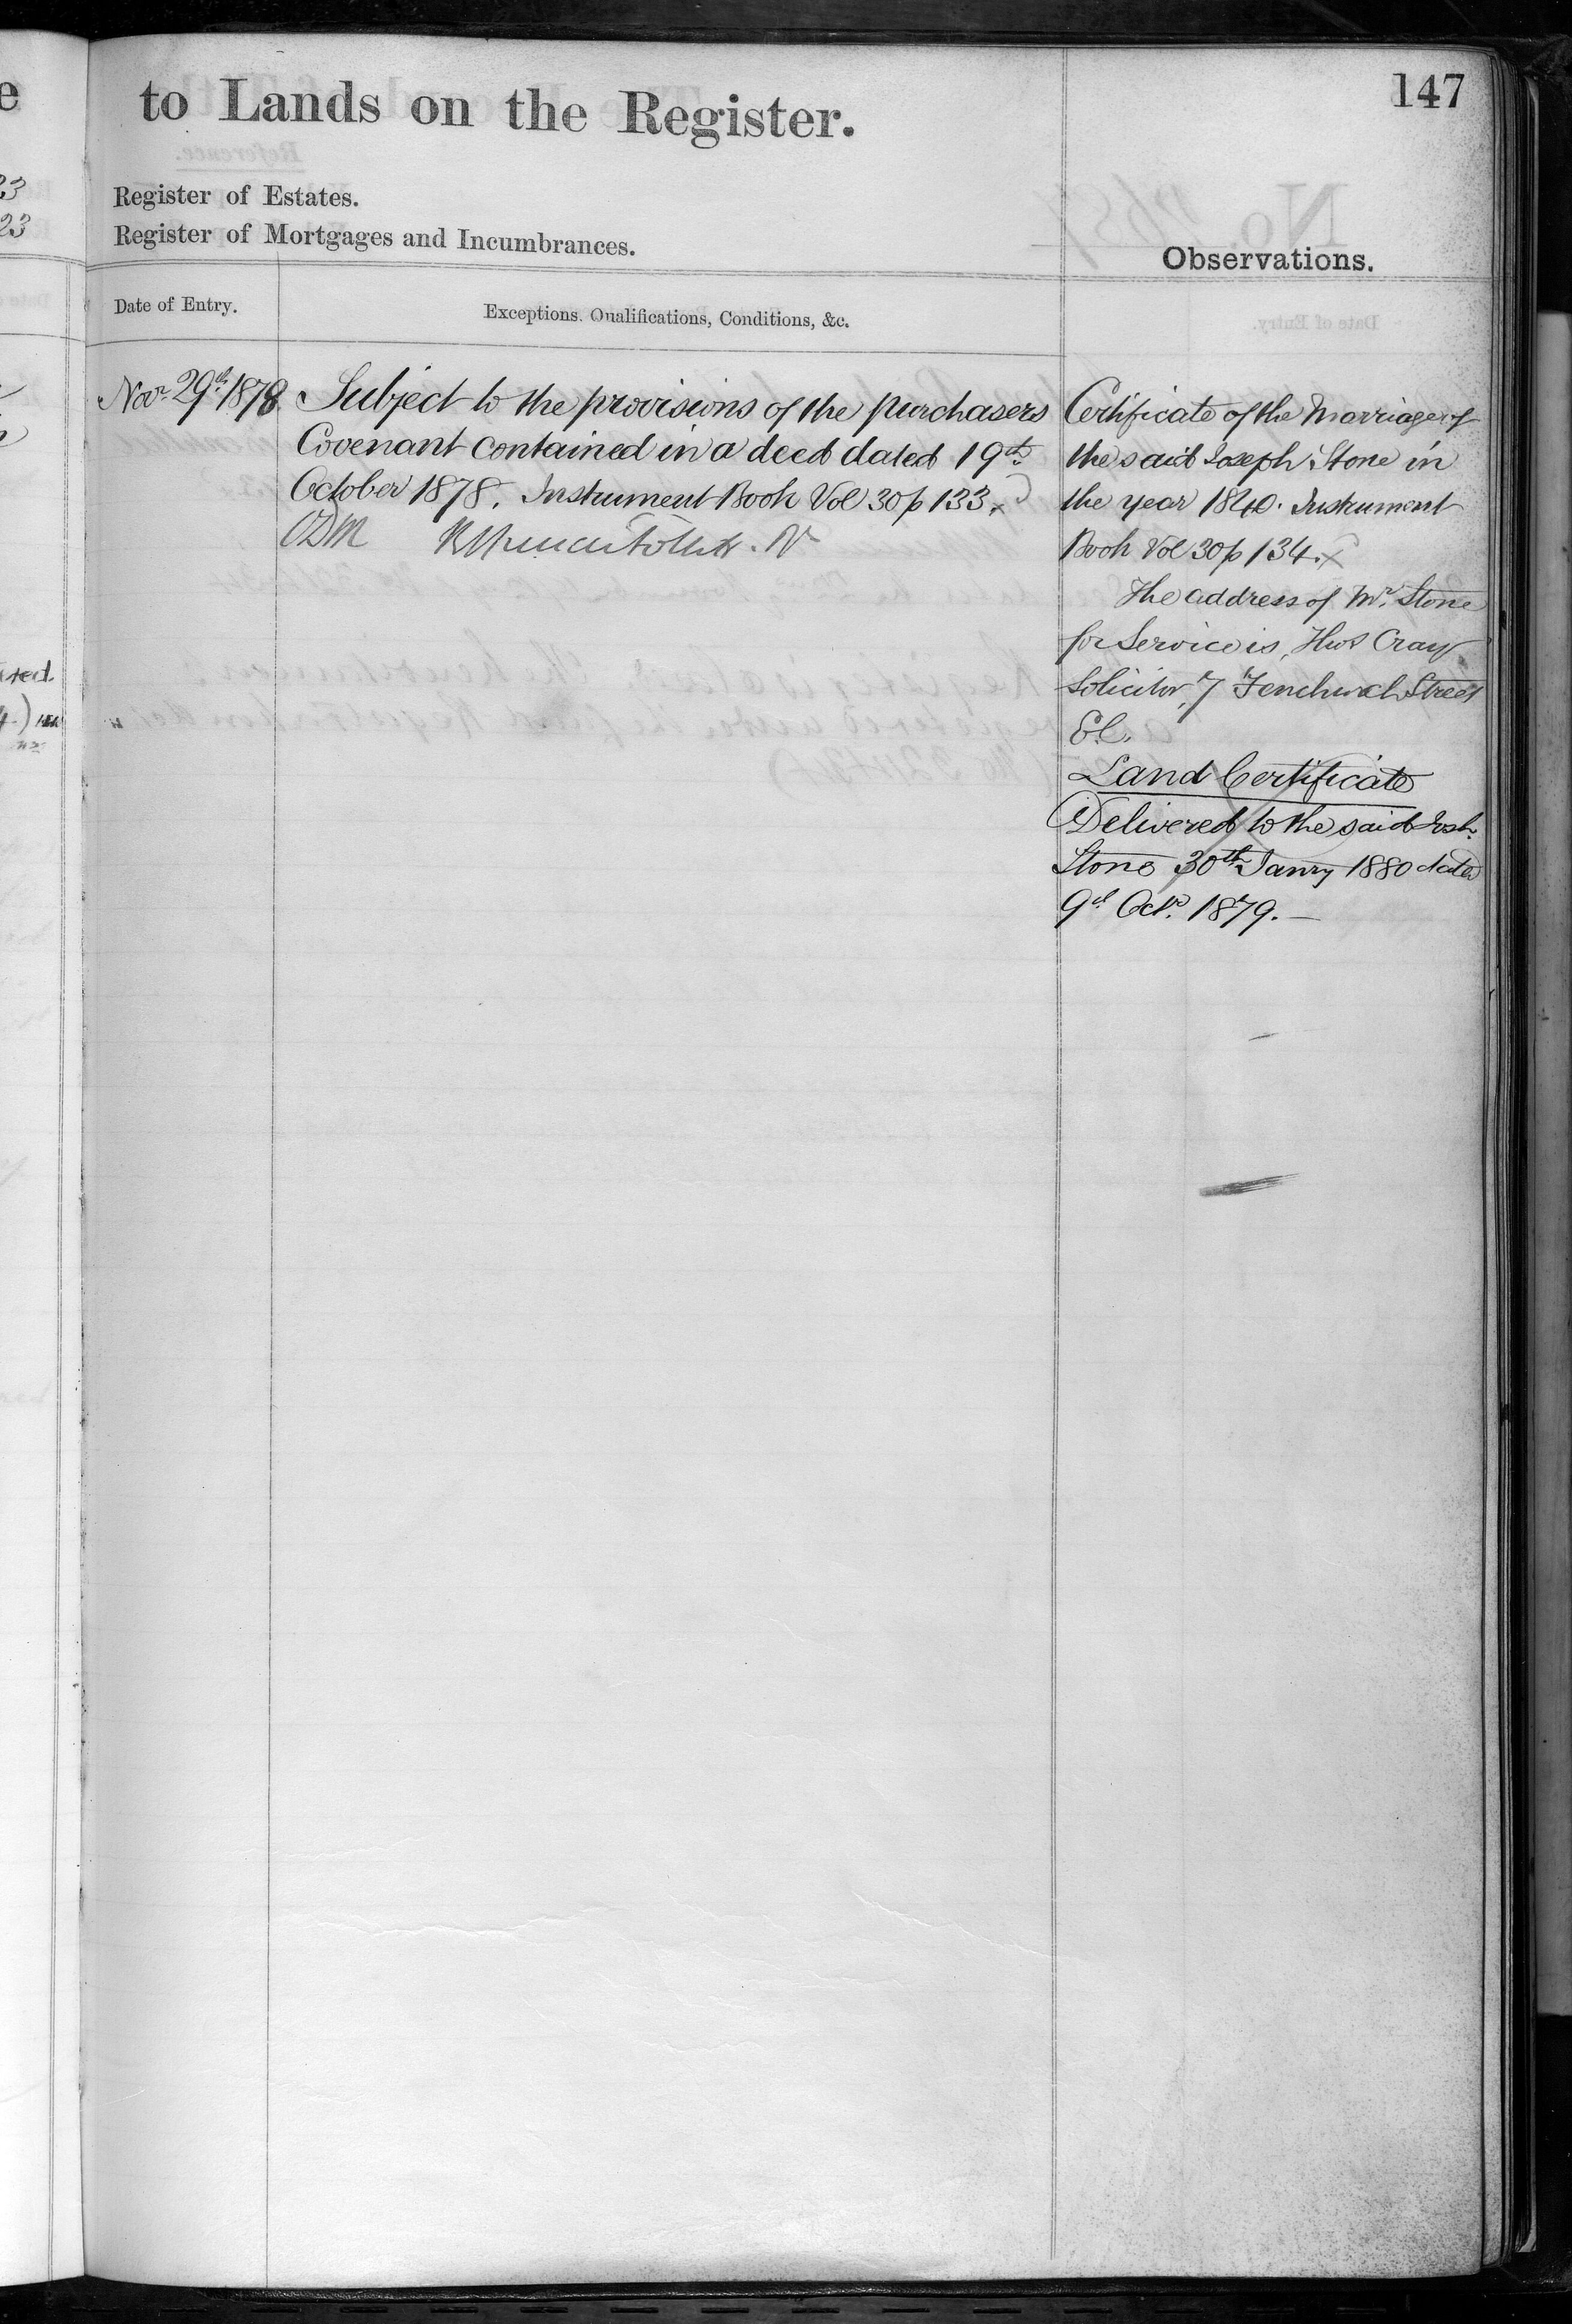 147
to Lands on the Register.
Register of Estates.
Register of Mortgages and Incumbrances.
Observations.
Date of Entry.
Exceptions. Qualifications, Conditions, &c.
Novr 29th 1878
Subject to the provisions of the purchasers
Covenant contained in a deed dated 19th
October 1878. Instrument Book Vol 30 p 133.
Certificate of the Marriage of
the said Joseph Stone in
the year 1840. Instrument
Book Vol 30 p 134.
The address of Mr. Stone
for Service is, Thos Cray
Solicitor, 7 Fenchurch Street
E.C.
Land Certificate
Delivered to the said Josh.
Stone 30th Janry 1880 dated
9th Octr. 1879.